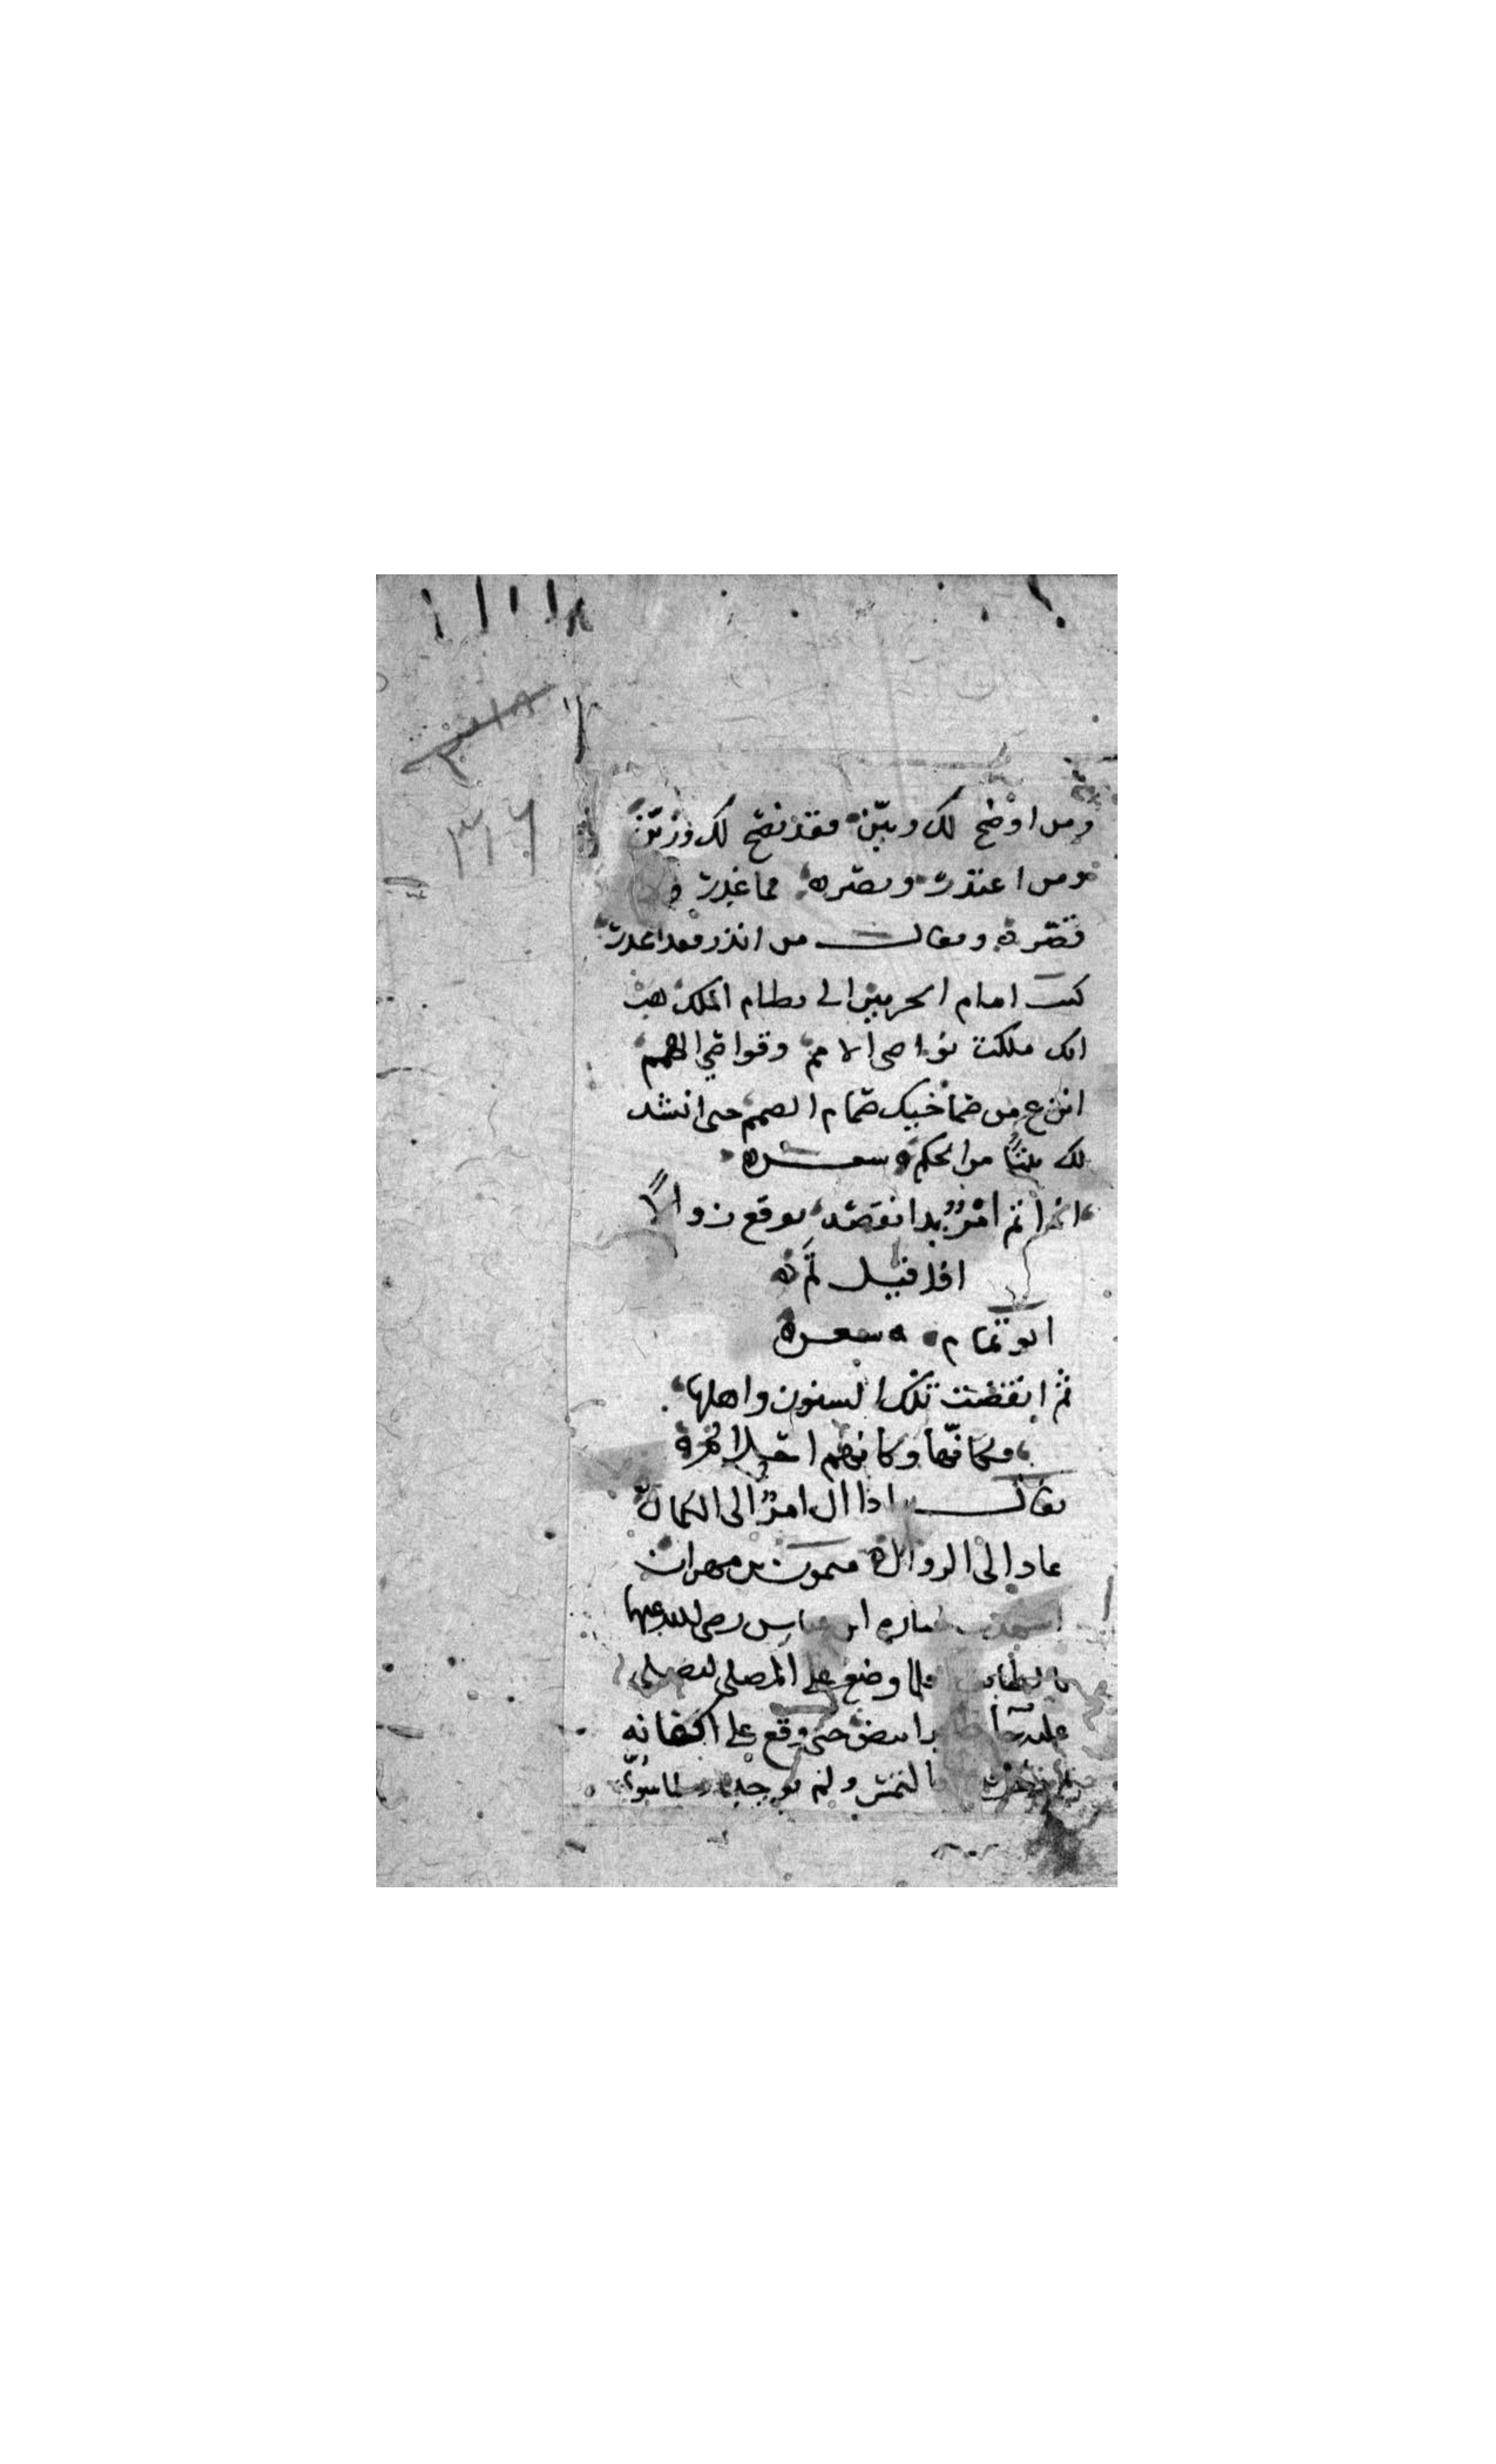 ٣١٨
٣١٦
ومن اوضح لك وبيّن فقد نصح لك وزيّن
ومن اعتذر وبصّر فما غدر و
قصّر ويقال من انذر فقد اعذر
كتب امام الحرمين الى نظام الملك هب
انك ملكت نواصي الامم وقواصي الهمم
انزع من صماخيك صمام الصمم حتى انشد
لك بيتًا من الحكم شعر
اذا تم امرٌ بدا نقصه توقع زوالًا
اذا قيل تم
ابو تمام شعر
ثم انقضت تلك السنون واهلها
فكانّها وكانهم احلام
يقال اذا آل امرٌ الى الكمال
عاد الى الزوال ميمون بن مهران
جنازة ابن عباس رضي الله عنهما
بالطائف فلما وضع على المصلى ليصلى
عليه ابيض حتى وقع على اكفانه
فالتمس ولم يوجد